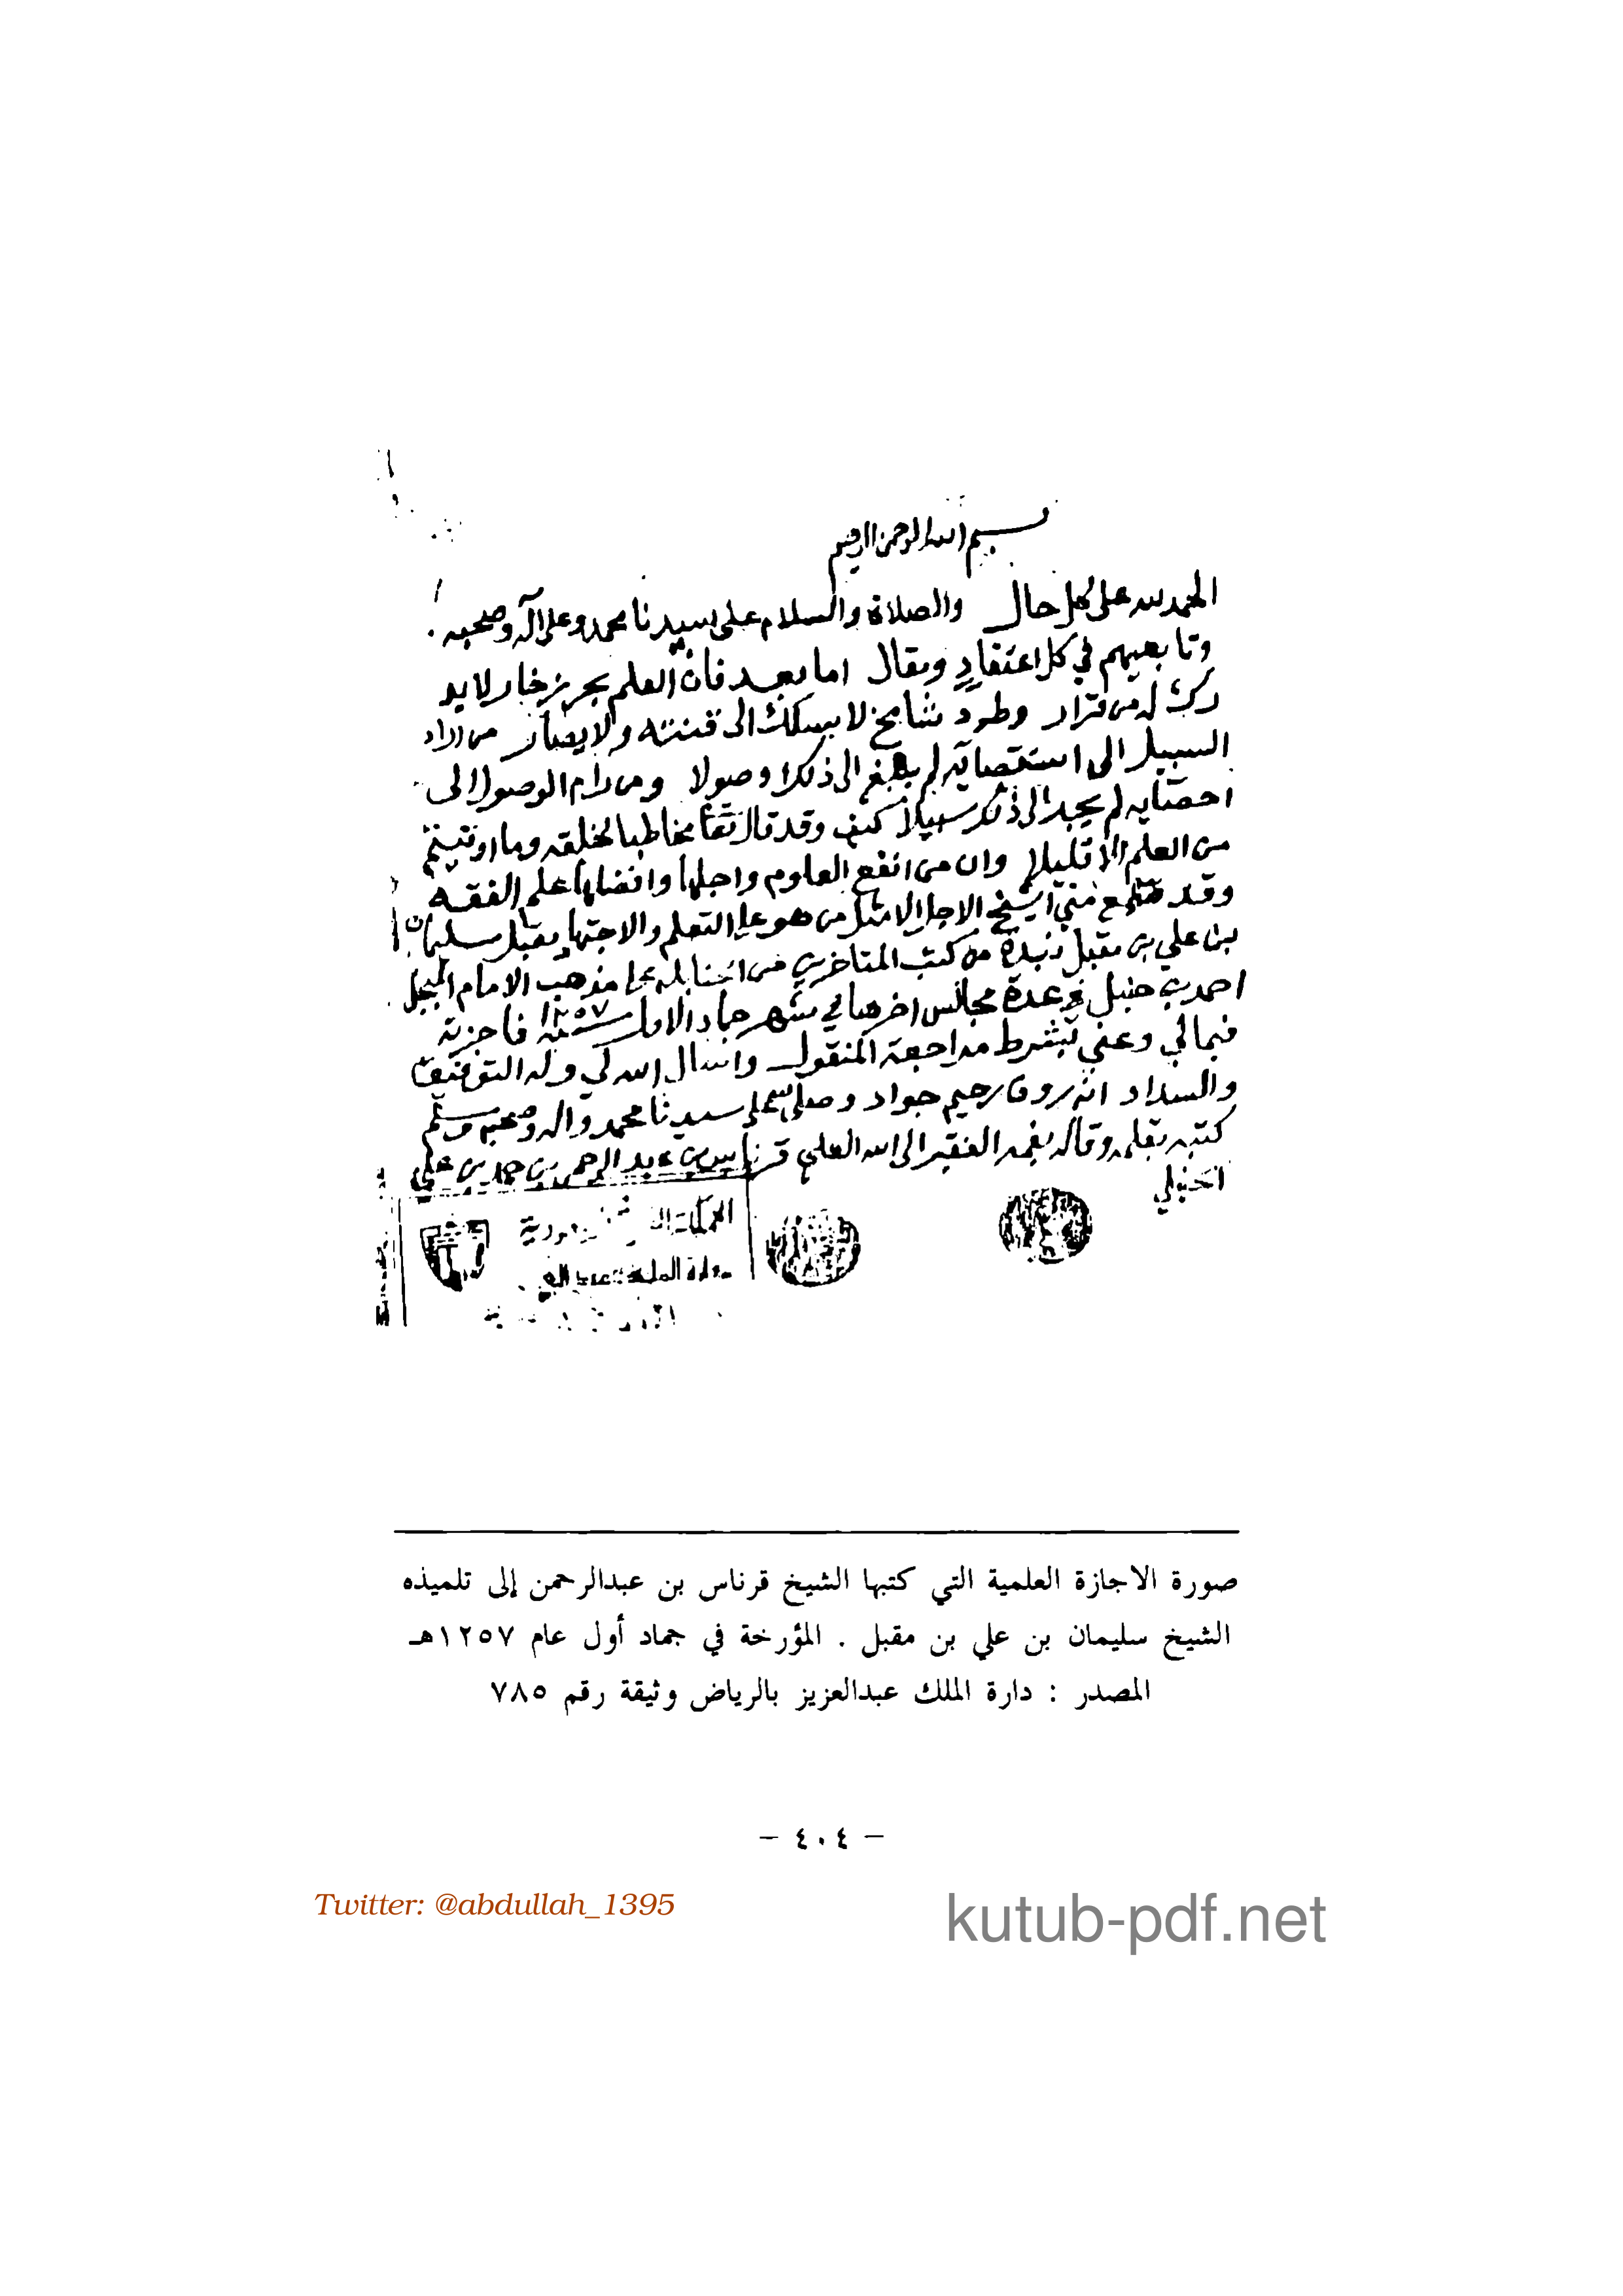 بسم الله الرحمن الرحيم
الحمد لله على كل حال والصلاة والسلام على سيدنا محمد وعلى اله وصحبه
وتابعيهم في كل اعتقاد ومقال اما بعد فان العلم بحر زخار لا يد
رك له من قرار وطود شامخ لا يسلك الى قنته ولا يصار من اراد
السبيل الى استقصائه لم يبلغ الى ذلك وصولا ومن رام الوصول الى
احصائه لم يجد الى ذلك سبيلا كيف وقد قال تعا مخاطبا لخلقه وما اوتيتم
من العلم الا قليلا وان من انفع العلوم واجلها وافضلها علم الفقه
وقد سمع مني الشيخ الاجل الامثل من هو على التعلم والاجتهاد مقبل سليمان
بن علي بن مقبل نبذة من كتب المتاخرين من الحنابلة مذهب الامام المبجل
احمد بن حنبل في عدة مجالس اخرها في شهر جماد الاول سنة ١٢٥٧ فاجزته
فيما لي وعني بشرط مراجعة المنقول واسال الله لي وله التوفيق
والسداد انه روف رحيم جواد وصلى الله على سيدنا محمد واله وصحبه وسلم
كتبه بقلمه وقاله بفمه الفقير الى الله العلي قرناس بن عبد الرحمن بن حمد بن علي
الحنبلي
صورة الاجازة العلمية التي كتبها الشيخ قرناس بن عبدالرحمن إلى تلميذه
الشيخ سليمان بن علي بن مقبل . المؤرخة في جماد أول عام ١٢٥٧هـ
المصدر : دارة الملك عبدالعزيز بالرياض وثيقة رقم ٧٨٥
- ٤٠٤ -
Twitter: @abdullah_1395
kutub-pdf.net